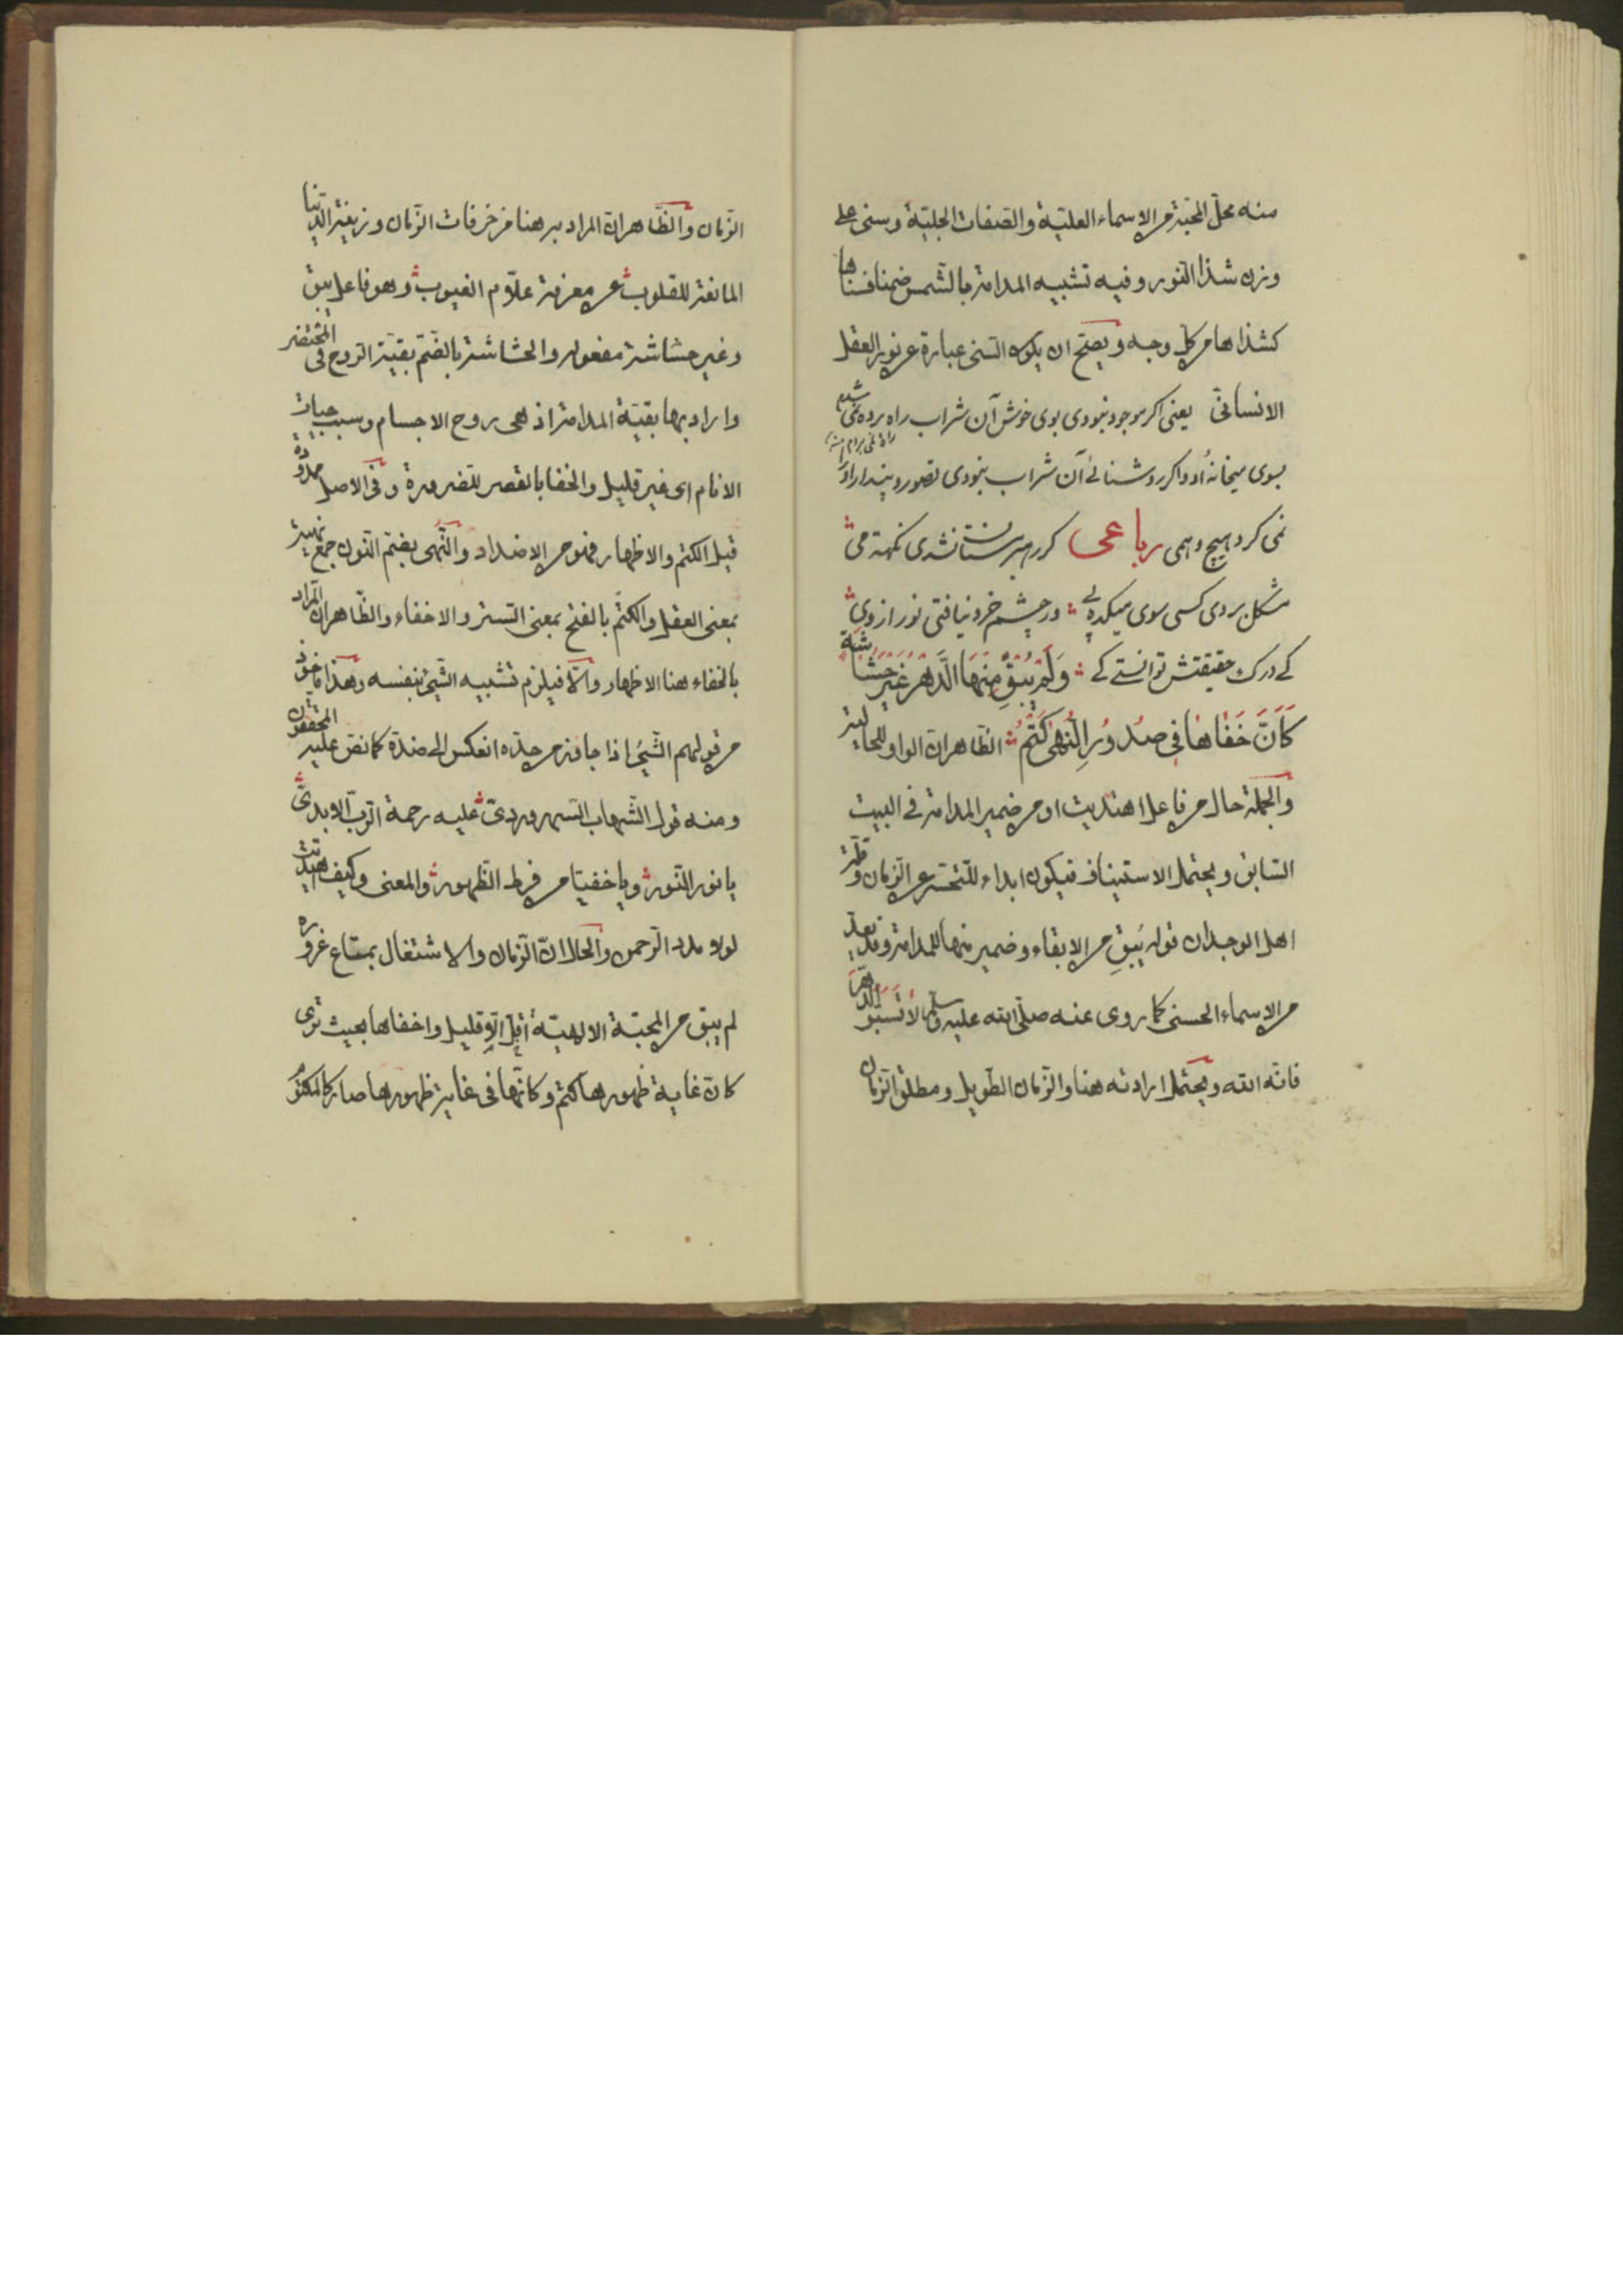 منه محلّ المحبّة من الاسماء العليّة والصّفات الجليّة وسنى على
وزن شذا النّور وفيه تشبيه المدامة بالشّمس ضمنا فسناها
كشذاها من كلّ وجه ويصحّ ان يكون السّنى عبارة عن نور العقل
الانسانىّ يعنى اكر موجود نبودى بوى خوش آن شراب راه برده نمى شدم
بسوى ميخانهٔ او واكر روشنائئ آن شراب نبودى تصور و پندار او را
نمى كرد هيچ وهمى رباعى كر رهبر مستان نشدى نكهت مى
مشكل بردى كسى سوى ميكده پى در چشم خرد نيافتى نور از وى
كے درك حقيقتش توانستے كے وَلَمْ يُبْقِ مِنْهَا الدَّهْرُ غَيْرَ حُشَاشَةٍ
كَاَنَّ خَفَاهَا فِى صُدُورِ النُّهٰى كَتْمُ الظّاهر انّ الواو للحاليّة
والجملة حال من فاعل اهتديت او من ضمير المدامة فى البيت
السّابق ويحتمل الاستيناف فيكون ابداء للتحسّر عن الزّمان وقلّة
اهل الوجدان قوله يُبْقِ من الابقاء وضمير منها للمدامة وقد يعدّ
من الاسماء الحسنى كما روى عنه صلّى الله عليه وسلّم لا تسبّوا الدّهر
فانّه الله ويحتمل ارادته هنا والزّمان الطّويل ومطلق الزّمان
الزّمان والظّاهر انّ المراد به هنا مزخرفات الزّمان وزينة الدّنيا
المانعة للقلوب عن معرفة علّام الغيوب وهو فاعل يبق
وغير حشاشة مفعوله والحشاشة بالضّمّ بقيّة الرّوح فى المحتضر
واراد بها بقيّة المدامة اذ هى روح الاجسام وسبب حيات
الانام اى غير قليل والخفا بالقصر للضرورة وفى الاصل ممدودة
قيل الكتم والاظهار فهو من الاضداد والنّهى بضمّ النّون جمع نهية
بمعنى العقل والكتم بالفتح بمعنى التستر والاخفاء والظّاهر انّ المراد
بالخفاء هنا الاظهار والّا فيلزم تشبيه الشّئ بنفسه وهذا ماخوذ
من قولهم الشّئ اذا جاوز من حدّه انعكس الى ضدّه كما نصّ عليه المحققون
ومنه قول الشّهاب السّهروردىّ عليه رحمة الرّبّ الابدىّ
يا نور النّور ويا خفيّا من فرط الظّهور والمعنى وكيف اهتديت
لولا مدد الرّحمن والحال انّ الزّمان والاشتغال بمتاع غروره
لم يبق من المحبّة الالهيّة اقلّ الّا قليل واخفاها بحيث ترى
كانّ غاية ظهورها كتم وكانّها فى غاية ظهورها صار كالمكتوم